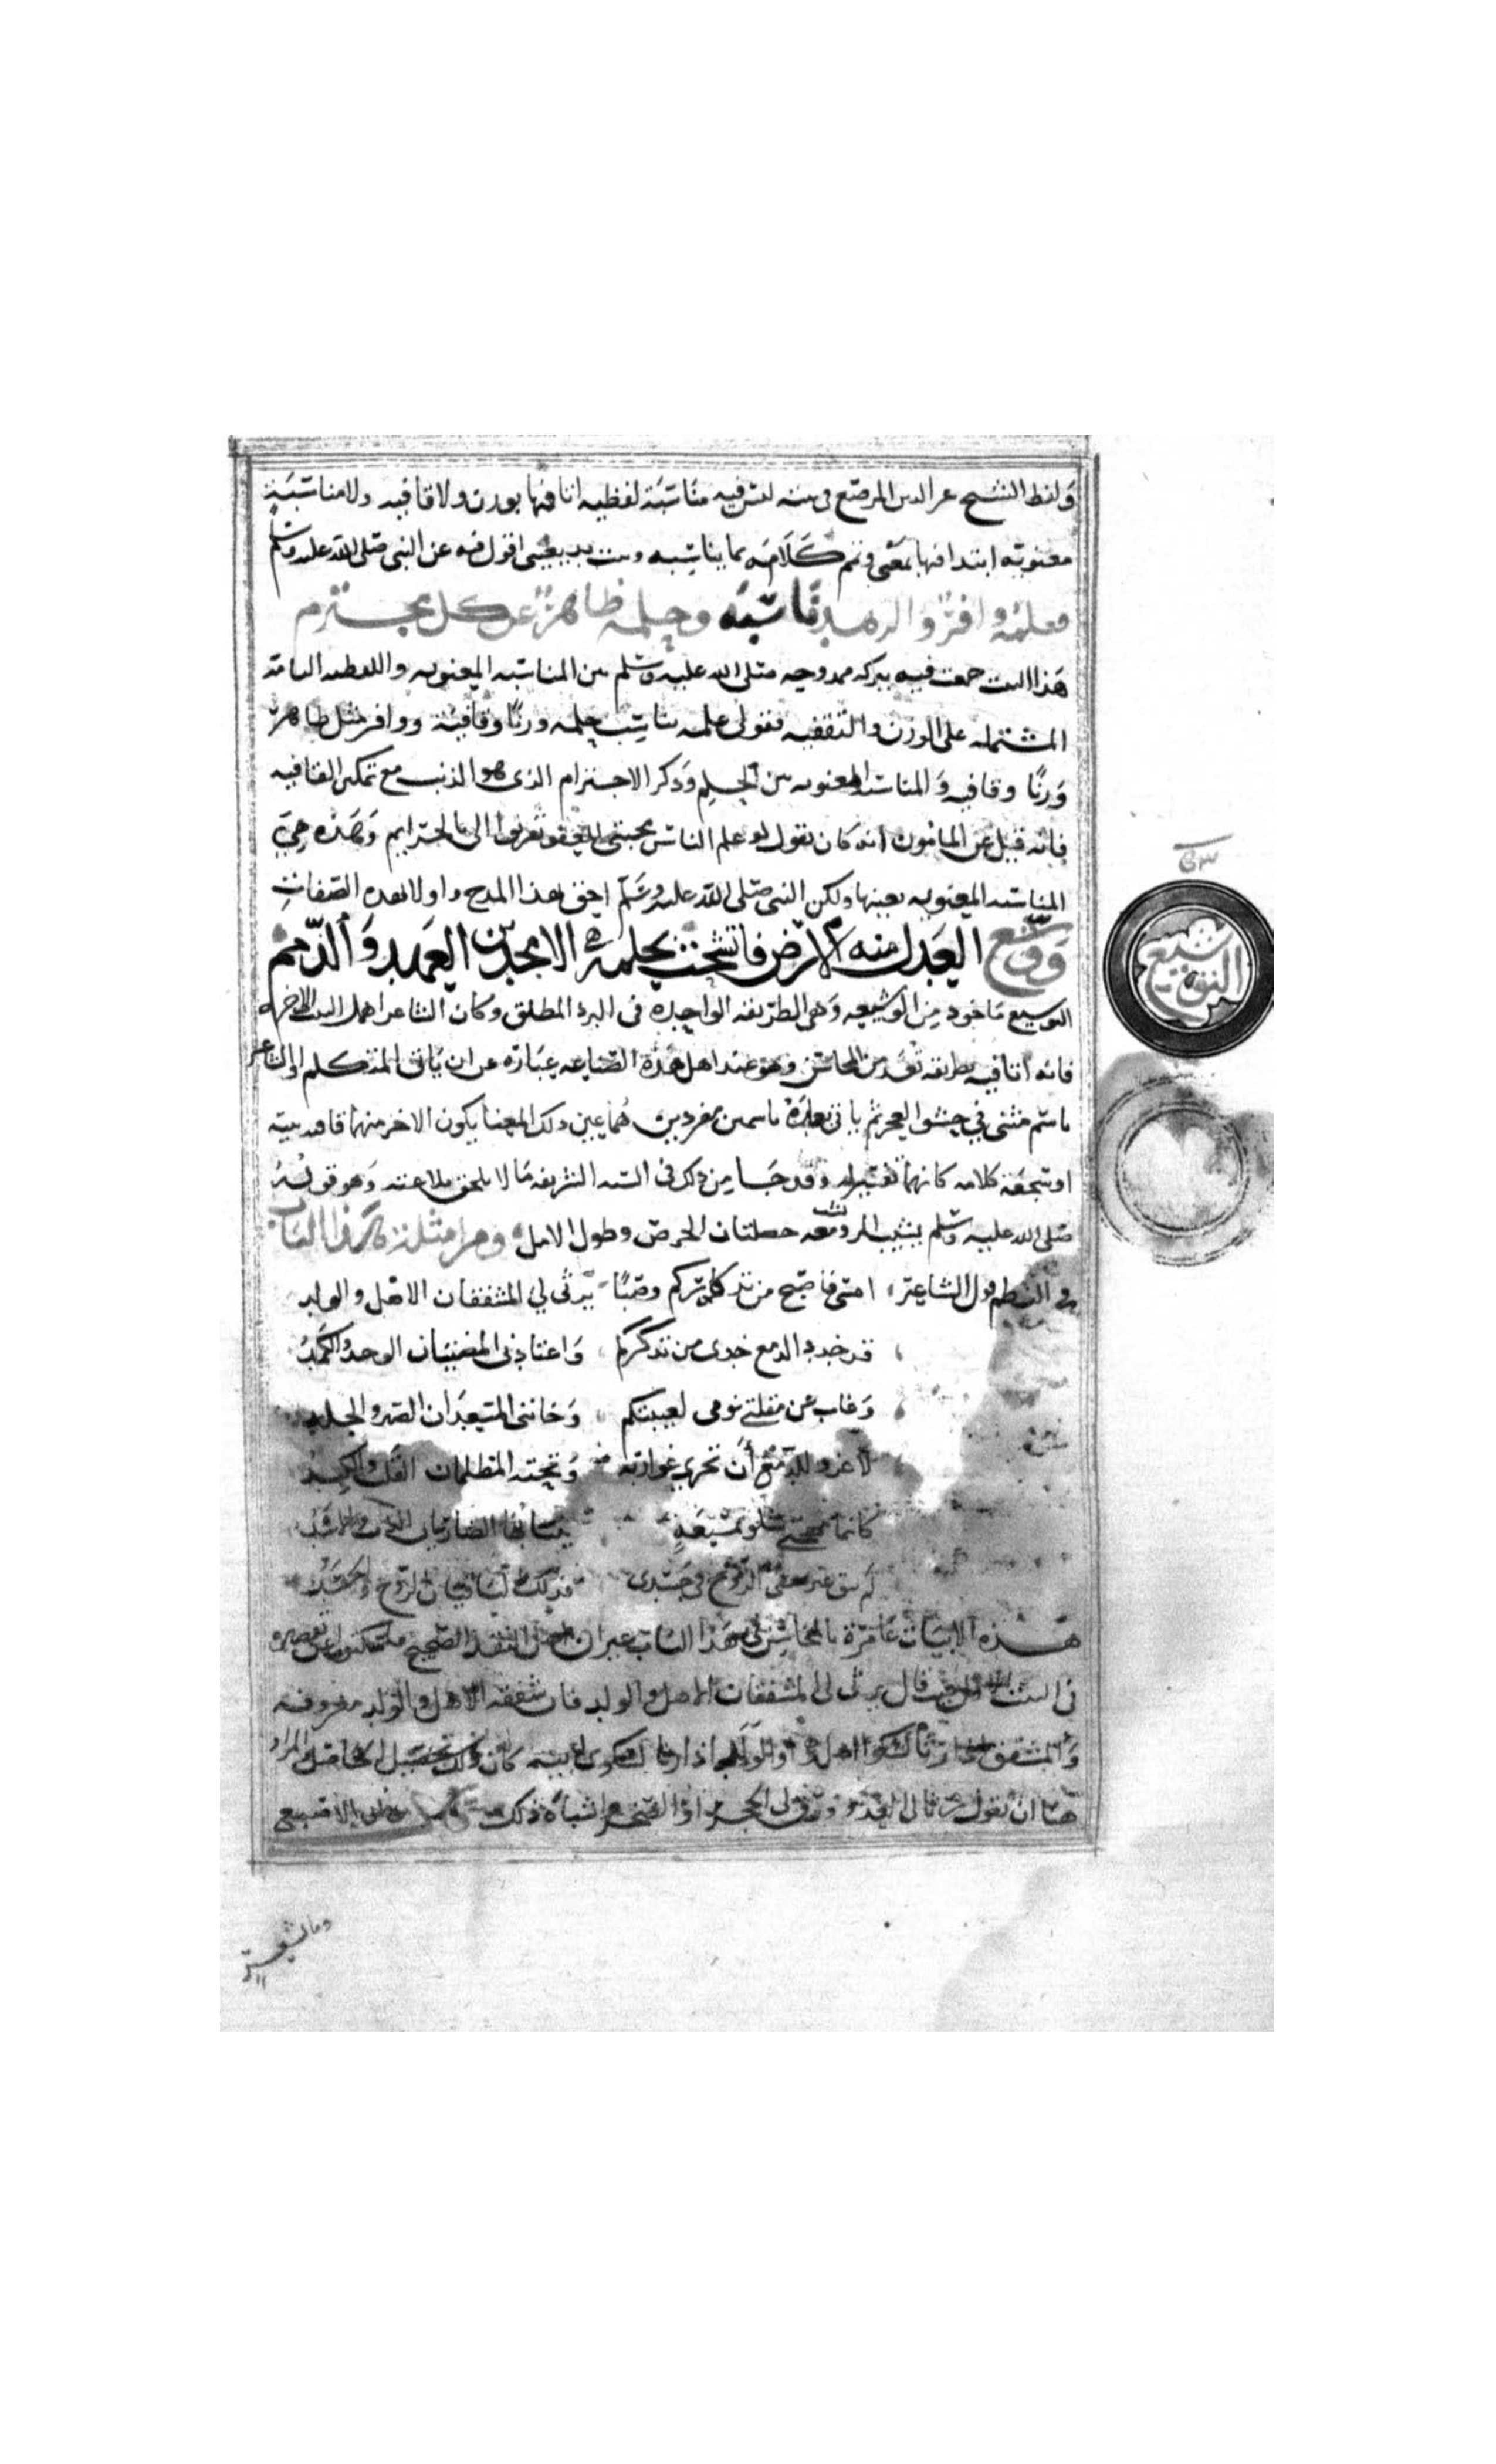 ولفظ الشيخ عز الدين المرصع في بيته ليس فيه مناسبة لفظيه اتا فيها بوزن ولا قافيه ولا مناسبة
معنويه ابتدا فيها بمعنى وتمم كلامه بما يناسبه وبيت بديعيتى اقول فيه عن النبى صلى الله عليه وسلم
فعلمه وافر والزهد ناسبه وحلمه ظاهر عن كل مجترم
هذا البيت جمعت فيه ببركه ممدوحه صلى الله عليه وسلم بين المناسبه المعنويه واللفظيه التامة
المشتمله على الوزن والتقفيه فقولى علمه يناسب حلمه وزنا وقافية ووافر مثل ظاهر
وزنا وقافيه والمناسبه المعنويه بين الحلم وذكر الاجترام الذى هو الذنب مع تمكين القافيه
فانه قيل عن المامون انه كان يقول لو علم الناس محبتى للعفو لتقربوا الى بالجرايم وهذه هي
المناسبه المعنويه بعينها ولكن النبى صلى الله عليه وسلم احق بهذا المدح واولا بهذه الصفات
ووشع العدل منه الارض فاتشحت بحلة الامجدين العهد والذمم
التوشيع ماخوذ من الوشيعه وهى الطريقه الواحده فى البرد المطلق وكان الشاعر اهمل البيت الا اخره
فانه اتا فيه بطريقه تعد من المحاسن وهو عند اهل هذه الصناعه عبارة عن ان ياتى المتكلم او الشاعر
باسم مثنى في حشو العجز ثم ياتى بعده باسمين مفردين هما عين ذلك المثنا يكون الاخر منهما قافية بيته
او سجعة كلامه كانهما تفسير له وقد جا من ذلك فى السنه الشريفه ما لا يلحق بلاغته وهو قوله
صلى الله عليه وسلم يشيب المرء وتشب معه خصلتان الحرص وطول الامل ومن امثلة هذا الباب
في النظم قول الشاعر امسى واصبح من تذكاركم وصبا يرثى لي المشفقان الاهل والولد
قد خدد الدمع خدى من تذكركم واعتادنى المضنيان الوجد والكمد
وغاب عن مقلتي نومى لغيبتكم وخاننى المسعدان الصبر والجلد
لا غرو للدمع أن تجرى غواربه وتحته المظلمان القلب والكبد
كانما مهجتى شلو بمسبعة ينتابها الضاريان الذئب والاسد
لم يبق غير خفي الروح في جسدى فدى لك الباقيان الروح والجسد
هذه الابيات عامرة بالمحاسن في هذا الباب غير ان اهل النقد الصحيح ما سكتوا عن تقصيره
في البيت الاول حيث قال يرثى لي المشفقان الاهل والولد فان شفقة الاهل والولد معروفه
والمشفق اذا رثا لشكوا اهله او الولد اذا رثا لشكوى ابيه كان ذلك تحصيل الحاصل والمراد
هنا ان يقول رثا لى العدو ورق لى الحجر او الصخر واشباه ذلك الاصبعى
وما